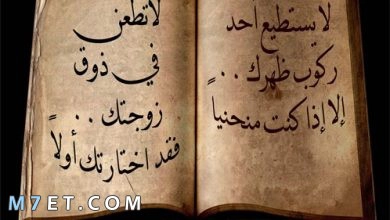 لا يستطيع أحد
ركوب ظهرك ..
إلا إذا كنت منحنياً
لا تطعن
في ذوق
زوجتك ..
فقد اختارتك أولاً
M7ET.COM